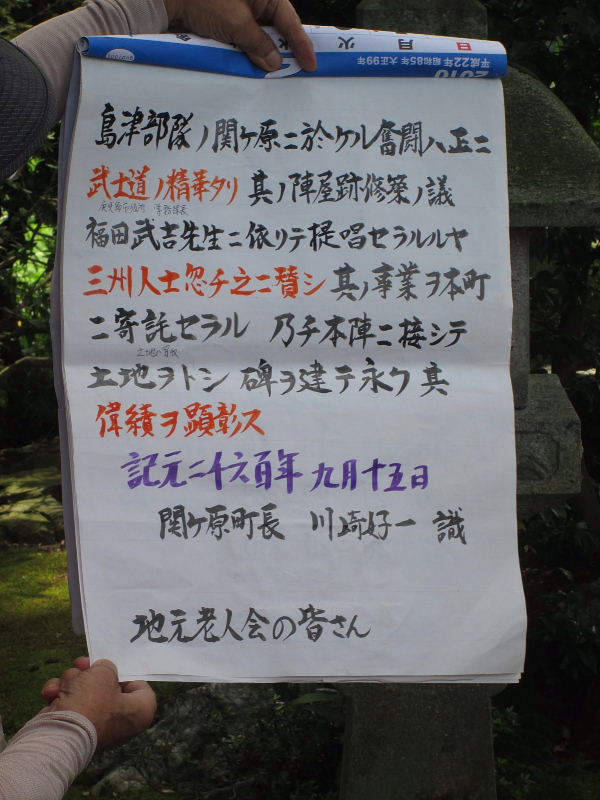 2010
平成22年 昭和85年 大正99年
日 月 火 水
島津部隊ノ関ヶ原ニ於ケル奮闘ハ正ニ
武士道ノ精華タリ 其ノ陣屋跡修築ノ議
福田武吉先生ニ依リテ提唱セラルルヤ
三州人士忽チ之ニ賛シ 其ノ事業ヲ本町
ニ寄託セラル 乃チ本陣ニ接シテ
土地ヲトシ 碑ヲ建テ永ク其
偉績ヲ顕彰ス
記元二千六百年 九月十五日
関ヶ原町長 川崎好一 識
地元老人会の皆さん